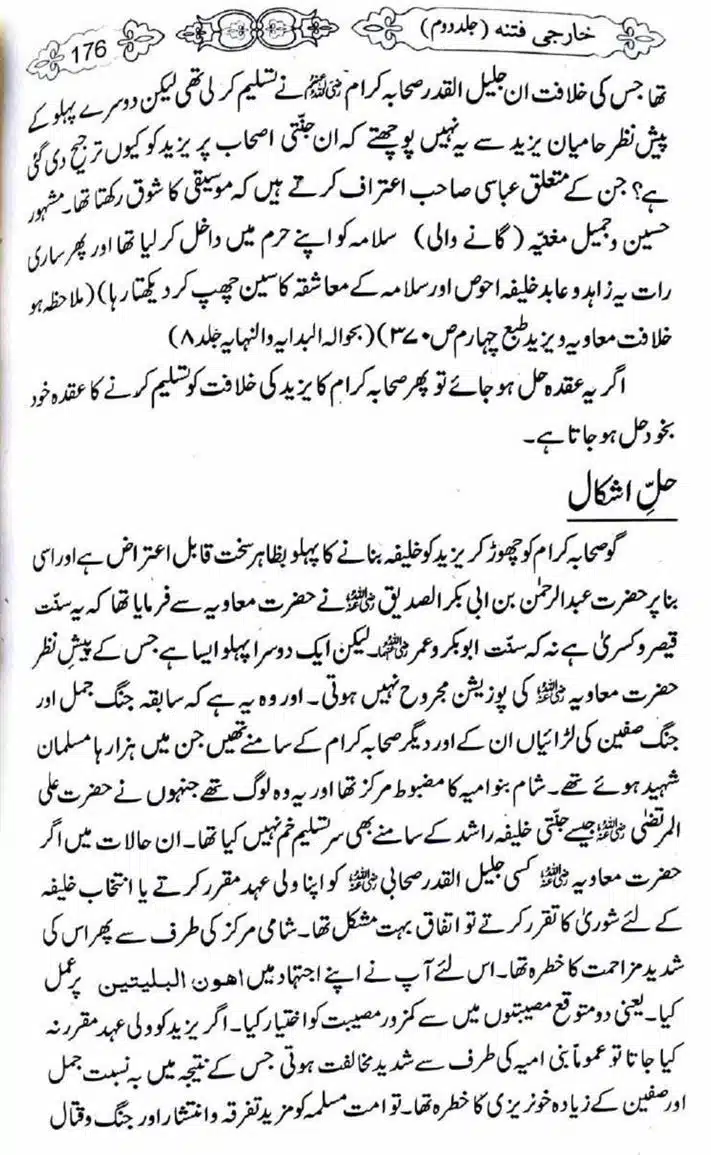 خارجی فتنہ (جلد دوم)
176
تھا جس کی خلافت ان جلیل القدر صحابہ کرام رضی اللہ عنہم نے تسلیم کر لی تھی لیکن دوسرے پہلو کے
پیش نظر حامیان یزید سے یہ نہیں پوچھتے کہ ان جنّتی اصحاب پر یزید کو کیوں ترجیح دی گئی
ہے؟ جن کے متعلق عباسی صاحب اعتراف کرتے ہیں کہ موسیقی کا شوق رکھتا تھا۔ مشہور
حسین و جمیل مغنیّہ (گانے والی) سلامہ کو اپنے حرم میں داخل کر لیا تھا اور پھر ساری
رات یہ زاہد و عابد خلیفہ احوص اور سلامہ کے معاشقہ کا سین چھپ کر دیکھتا رہا) (ملاحظہ ہو
خلافت معاویہ و یزید طبع چہارم ص ۳۷۰) (بحوالہ البدایہ والنہایہ جلد ۸)
اگر یہ عقدہ حل ہو جائے تو پھر صحابہ کرام کا یزید کی خلافت کو تسلیم کرنے کا عقدہ خود
بخود حل ہو جاتا ہے۔
حلِّ اشکال
گو صحابہ کرام کو چھوڑ کر یزید کو خلیفہ بنانے کا پہلو بظاہر سخت قابل اعتراض ہے اور اسی
بنا پر حضرت عبدالرحمٰن بن ابی بکر الصدیق رضی اللہ عنہ نے حضرت معاویہ سے فرمایا تھا کہ یہ سنّت
قیصر و کسریٰ ہے نہ کہ سنّت ابوبکر و عمر رضی اللہ عنہما۔ لیکن ایک دوسرا پہلو ایسا ہے جس کے پیشِ نظر
حضرت معاویہ رضی اللہ عنہ کی پوزیشن مجروح نہیں ہوتی۔ اور وہ یہ ہے کہ سابقہ جنگ جمل اور
جنگ صفین کی لڑائیاں ان کے اور دیگر صحابہ کرام کے سامنے تھیں جن میں ہزارہا مسلمان
شہید ہوئے تھے۔ شام بنو امیہ کا مضبوط مرکز تھا اور یہ وہ لوگ تھے جنہوں نے حضرت علی
المرتضٰی رضی اللہ عنہ جیسے جنّتی خلیفہ راشد کے سامنے بھی سر تسلیم خم نہیں کیا تھا۔ ان حالات میں اگر
حضرت معاویہ رضی اللہ عنہ کسی جلیل القدر صحابی رضی اللہ عنہ کو اپنا ولی عہد مقرر کرتے یا انتخاب خلیفہ
کے لئے شوریٰ کا تقرر کرتے تو اتفاق بہت مشکل تھا۔ شامی مرکز کی طرف سے پھر اس کی
شدید مزاحمت کا خطرہ تھا۔ اس لئے آپ نے اپنے اجتہاد میں اھون البلیتین پر عمل
کیا۔ یعنی دو متوقع مصیبتوں میں سے کمزور مصیبت کو اختیار کیا۔ اگر یزید کو ولی عہد مقرر نہ
کیا جاتا تو عموماً بنی امیہ کی طرف سے شدید مخالفت ہوتی جس کے نتیجہ میں بہ نسبت جمل
اور صفین کے زیادہ خونریزی کا خطرہ تھا۔ تو امت مسلمہ کو مزید تفرقہ و انتشار اور جنگ و قتال